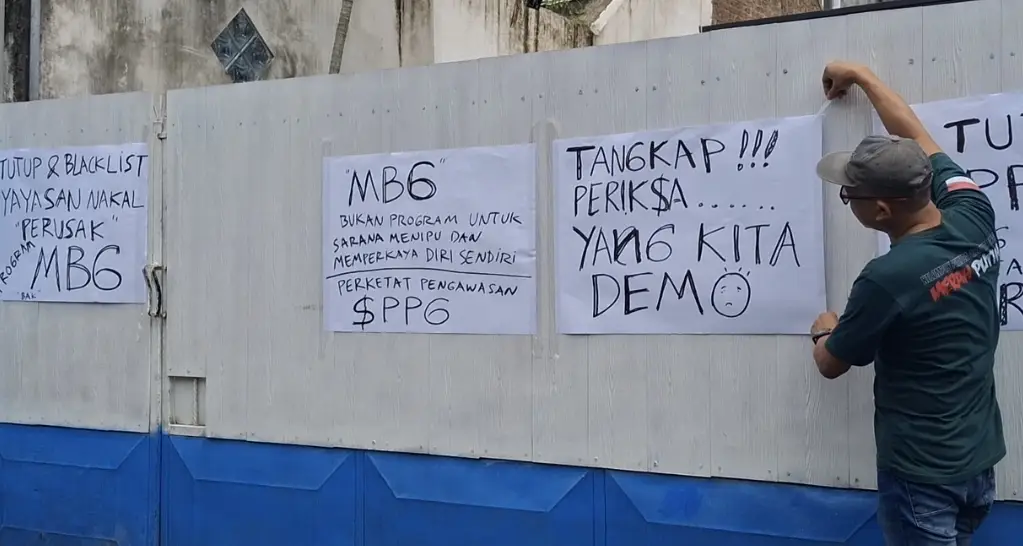 TUTUP & BLACKLIST
YAYASAN NAKAL
"PERUSAK"
PROGRAM MBG
"MBG"
BUKAN PROGRAM UNTUK
SARANA MENIPU DAN
MEMPERKAYA DIRI SENDIRI
PERKETAT PENGAWASAN
$PPG
TANGKAP !!!
PERIK$A.......
YANG KITA
DEMO
TU